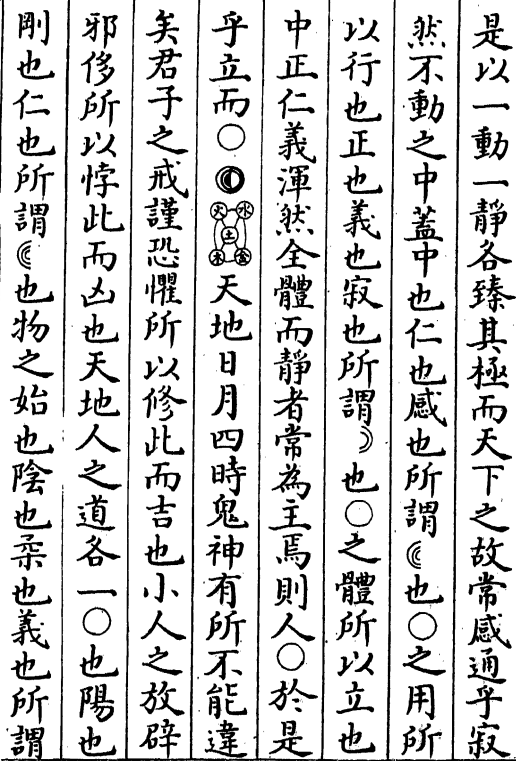 是以一動一靜各臻其極而天下之故常感通乎寂
然不動之中蓋中也仁也感也所謂☾也○之用所
以行也正也義也寂也所謂☽也○之體所以立也
中正仁義渾然全體而靜者常為主焉則人○於是
乎立而○◐火水土木金天地日月四時鬼神有所不能違
矣君子之戒謹恐懼所以修此而吉也小人之放辟
邪侈所以悖此而凶也天地人之道各一○也陽也
剛也仁也所謂☾也物之始也陰也柔也義也所謂